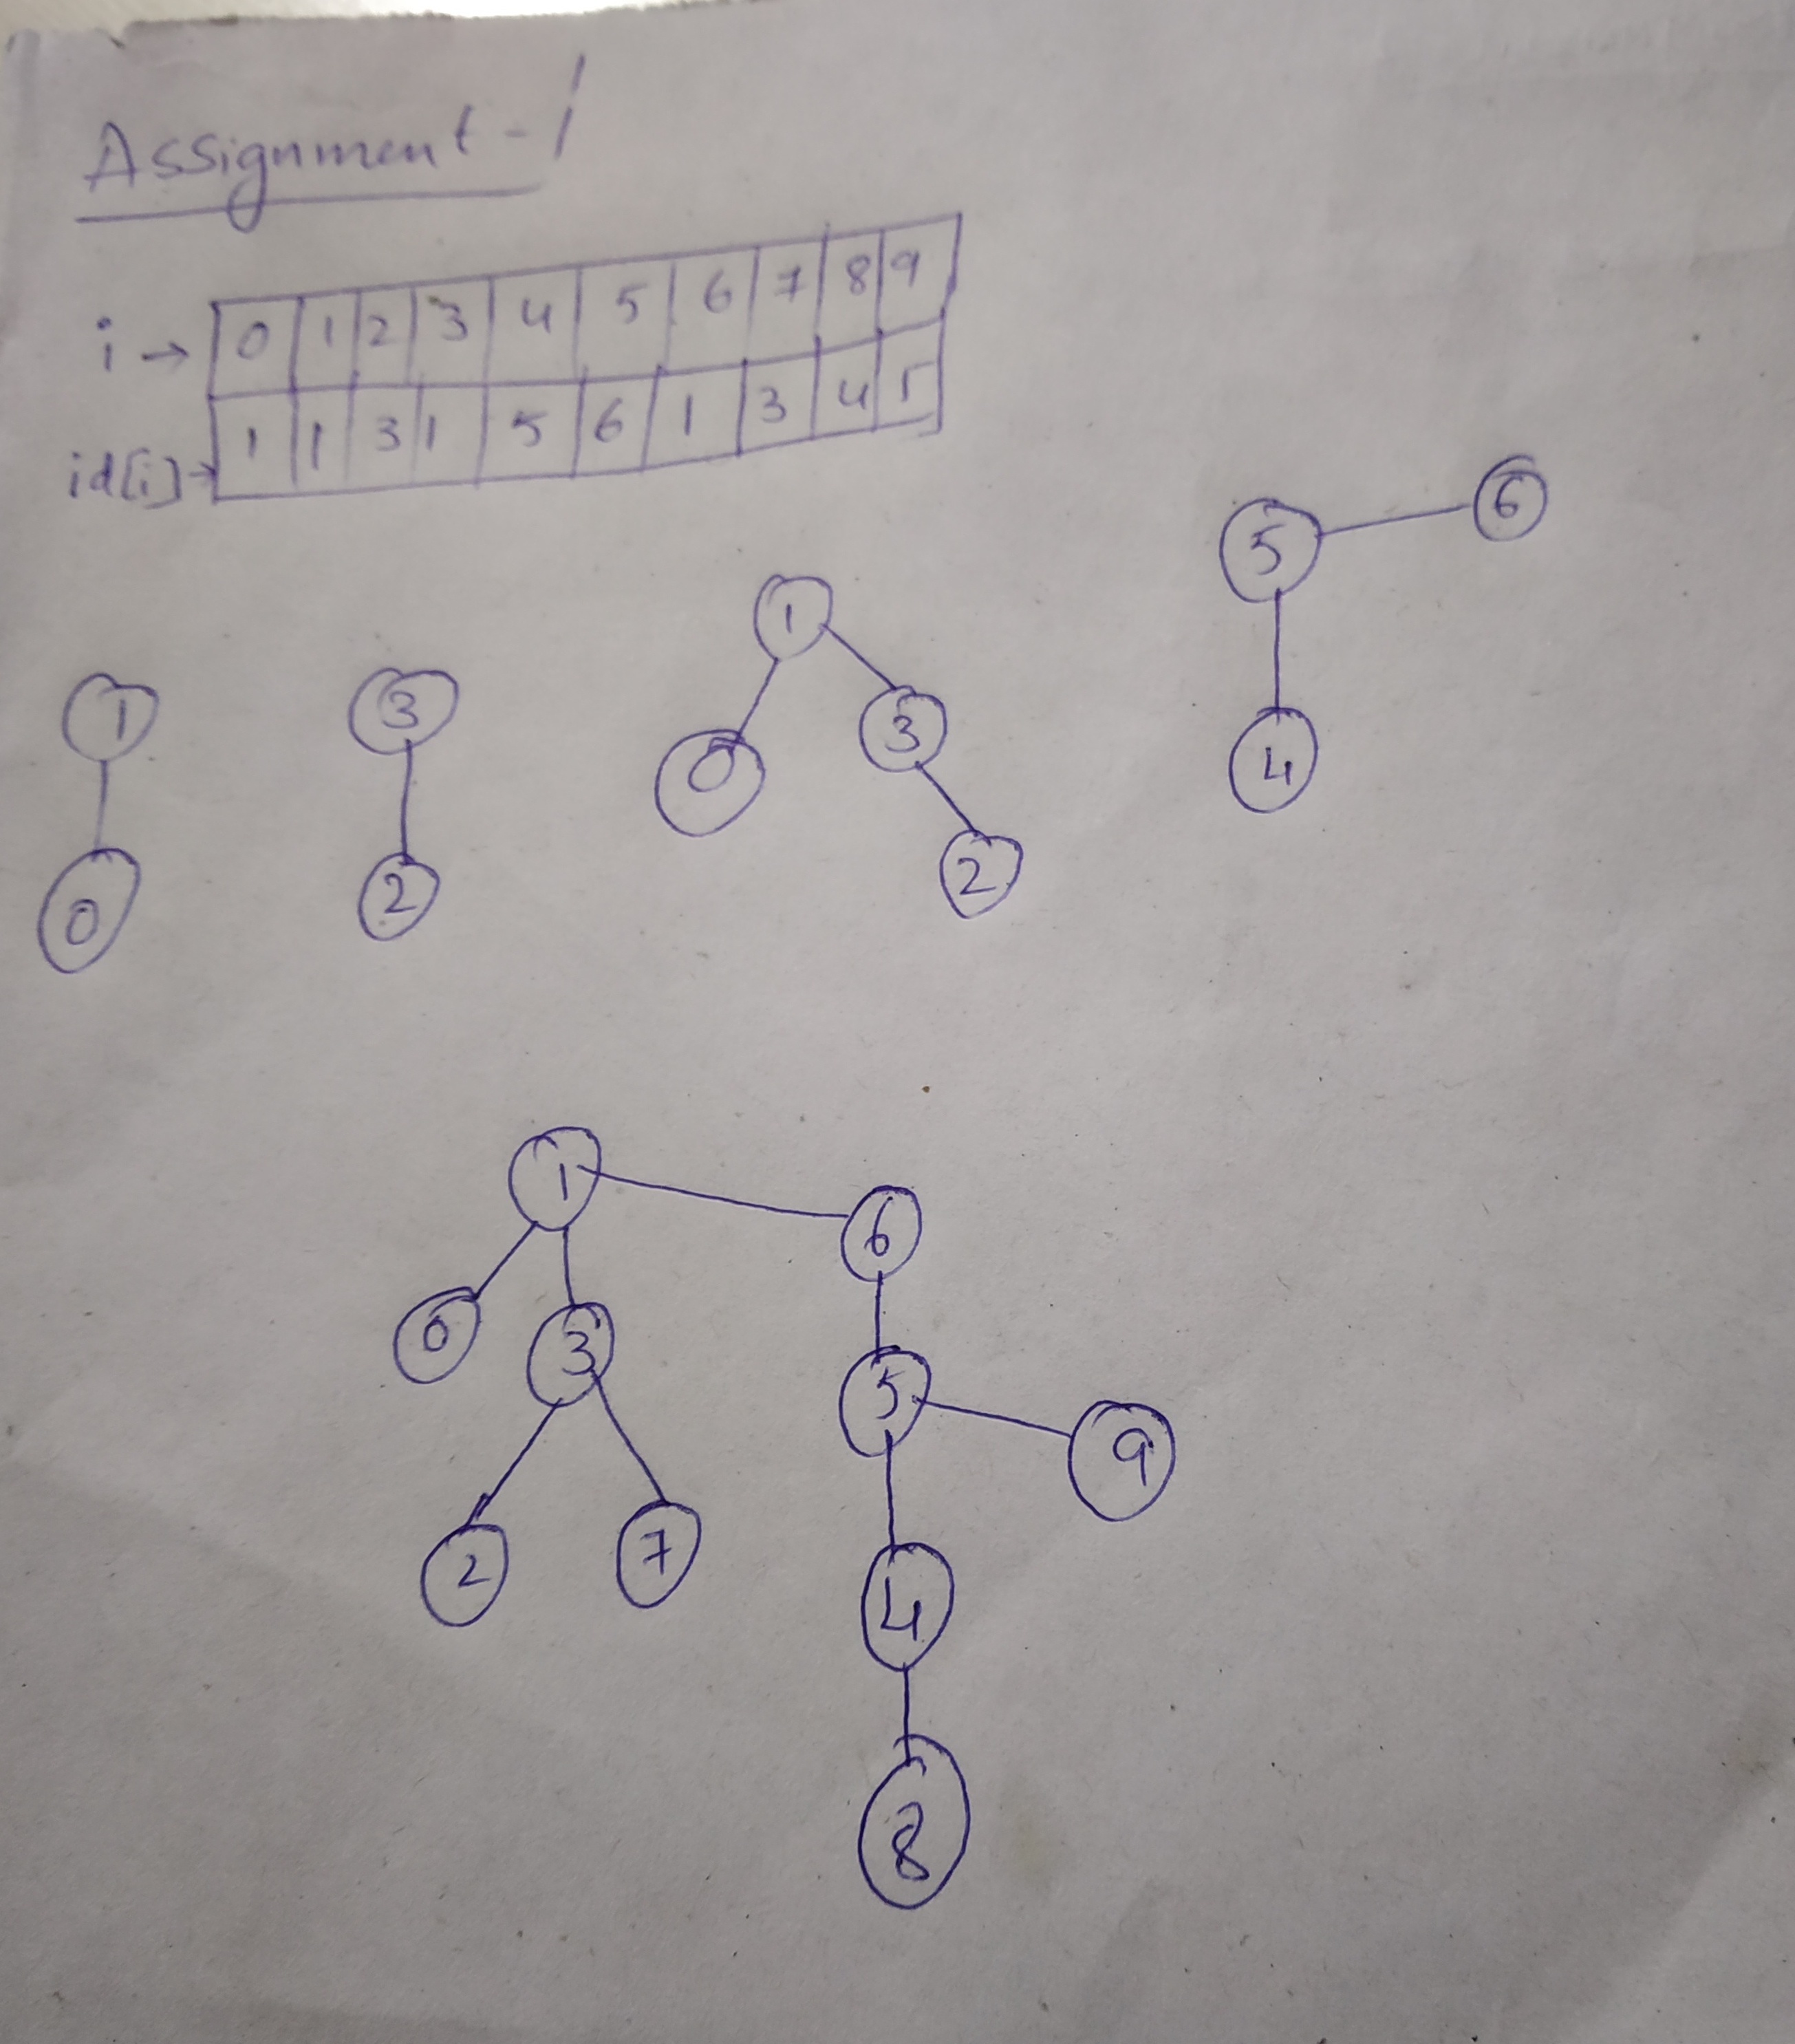 Assignment - 1
i → 0 1 2 3 4 5 6 7 8 9
id[i] → 1 1 3 1 5 6 1 3 4 5
6
5
1
1 3
3
0
4
0 2
2
1
6
0 3
5
9
2 7
4
8